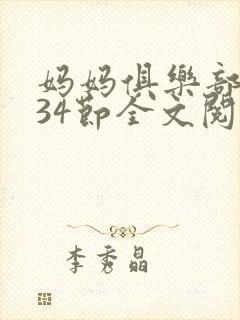 妈妈俱樂部
34节全文阅
李秀晶